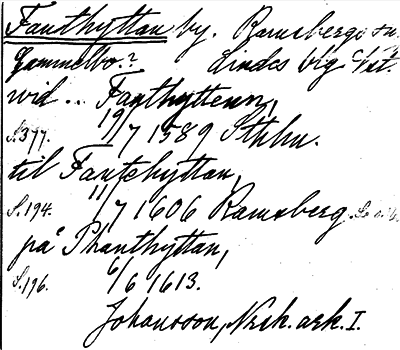 Fanthyttan by. Ramsbergs sn.
Gammelbo.? Lindes blg Vst.
wid .. Fanthyttenn,
S. 377. 19/7 1589 Sthlm.
til Fantehyttan,
S. 194. 11/7 1606 Ramsberg
på Phanthyttan,
S. 196. 6/6 1613.
Johansson, Nsk. ark. I.